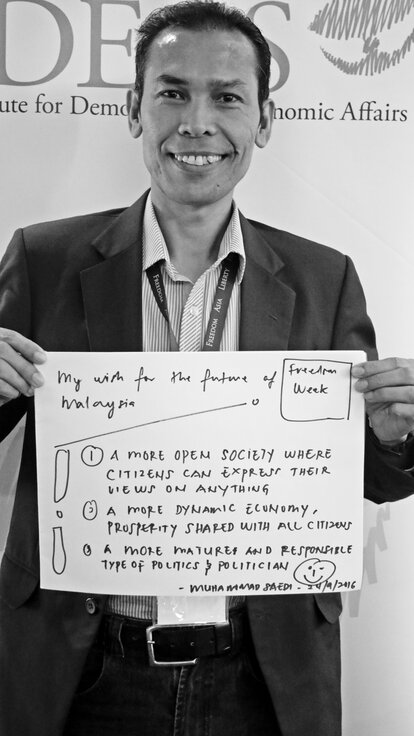 DE S
ute for Demo onomic Affairs
FREEDOM
FREEDOM ASIA LIBERTY
My wish for the future of
Malaysia
Freedom
Week
1 A MORE OPEN SOCIETY WHERE
CITIZENS CAN EXPRESS THEIR
VIEWS ON ANYTHING
2 A MORE DYNAMIC ECONOMY,
PROSPERITY SHARED WITH ALL CITIZENS
3 A MORE MATURED AND RESPONSIBLE
TYPE OF POLITICS & POLITICIAN
- MUHAMMAD SAEDI - 24/9/2016